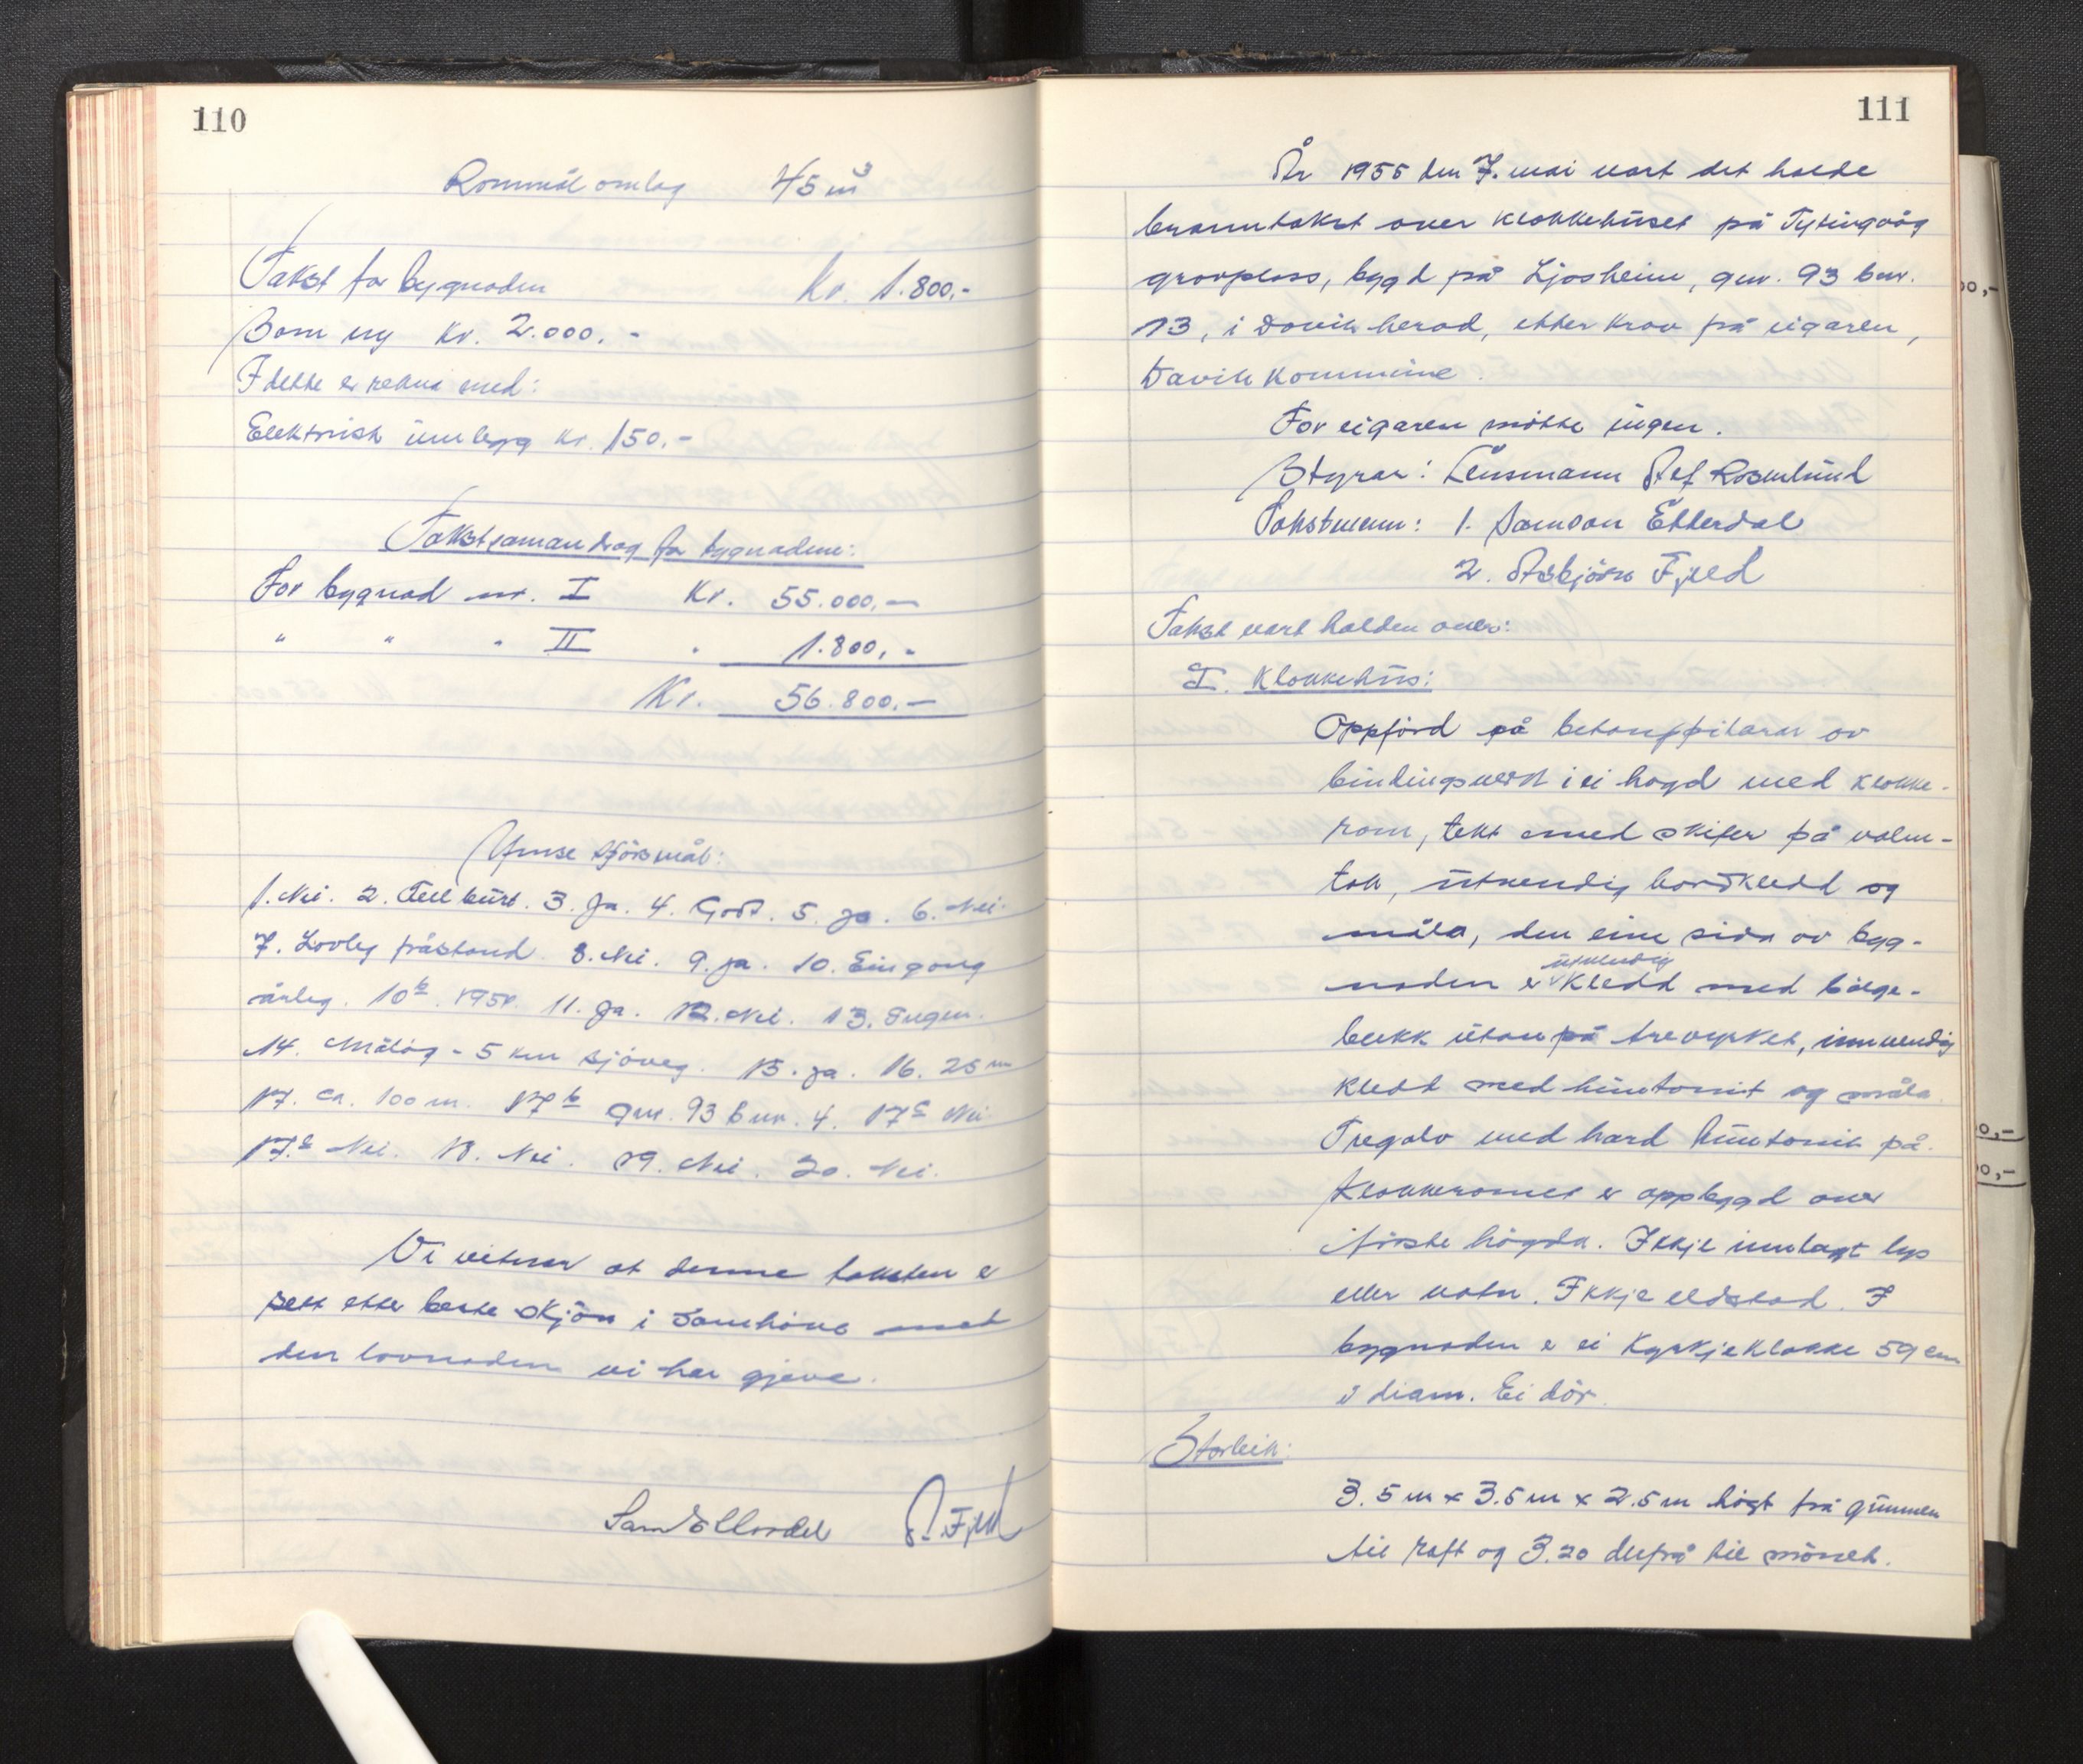 110
Rommål omlag 45 m³
Takst for bygnaden Kr. 1.800,-
Som ny Kr. 2.000,-
I dette er rekna med:
Elektrisk innlegg kr. 150,-
Takstsamandrag for bygnadene:
For bygnad nr. I Kr. 55.000,-
" " " II " 1.800,-
Kr. 56.800,-
Ymse spörsmål:
1. Nei. 2. Fullbürt. 3. Ja. 4. Godt. 5. Ja. 6. Nei.
7. Lovleg fråstand. 8. Nei. 9. Ja. 10. Ein gong
årleg. 10b. 1951. 11. Ja. 12. Nei. 13. Ingen.
14. Måløy - 5 km sjöveg. 15. Ja. 16. 25 m
17. Ca. 100 m. 17b gnr. 93 bnr. 4. 17c Nei
17.d Nei. 18. Nei. 19. Nei. 20. Nei.
Vi vitnar at denne taksten er
sett etter beste skjön i samhöve med
den lovnaden vi har gjeve.
Sam Etterdal A. Fjeld
111
År 1955 den 7. mai vart det halde
branntakst over klokkehuset på Tytingvåg
gravplass, bygd på Ljosheim, gnr. 93 bnr.
13, i Davik herad, etter krav frå eigaren,
Davik kommune.
For eigaren mötte ingen.
Styrar: Lensmann Alf Rosenlund
Takstmenn: 1. Samson Etterdal
2. Asbjörn Fjeld
Takst vart halden over:
I. Klokkehus:
Oppförd på betongpilarar av
bindingsverk i ei högd med klokke-
rom, tekt med skifer på valm-
tak, utvendig bordkledd og
måla, den eine sida av byg-
utvendig
naden er kledd med bölge-
blekk utanpå trevyrket, innvendig
kledd med huntonit og måla.
Tregolv med hard huntonit på.
Klokkeromet er oppbygd over
förste högda. Ikkje innlagt lys
eller vatn. Ikkje eldstad. I
bygnaden er ei kyrkjeklokke 59 cm
i diam. Ei dör.
Storleik:
3.5 m x 3.5 m x 2.5 m högt frå grunnen
til raft og 3.20 derfrå til mönet.